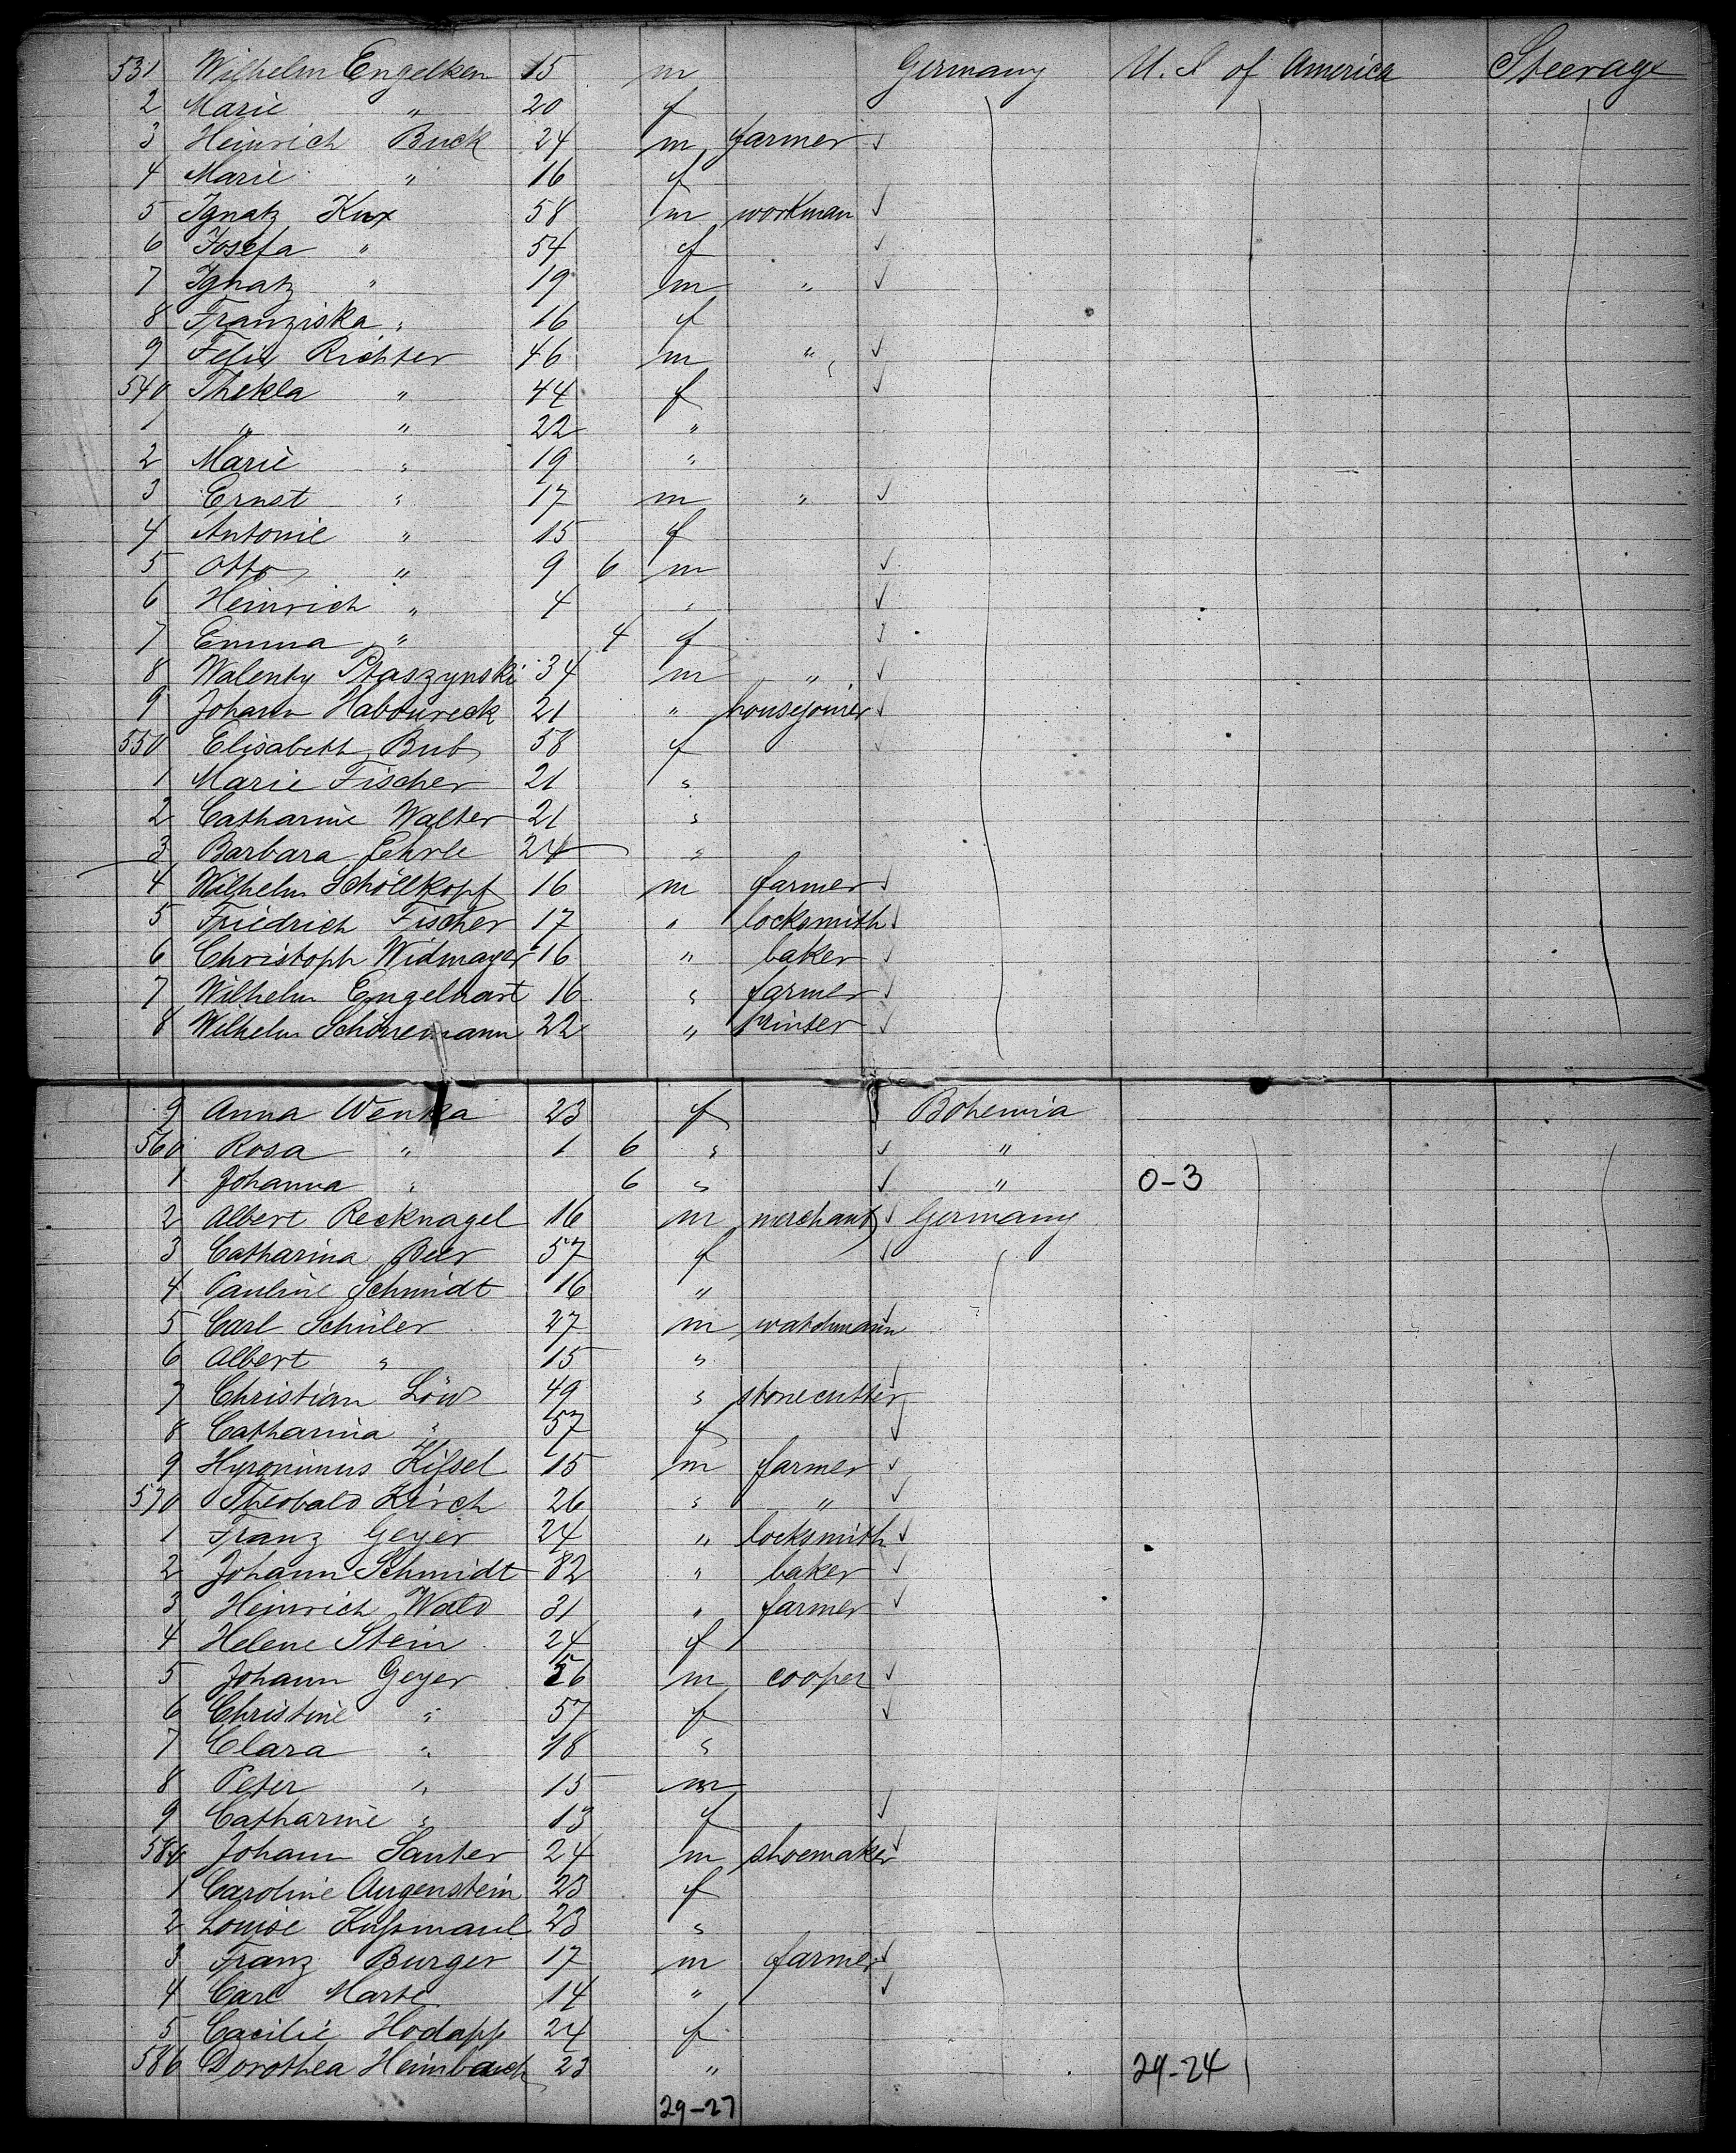 531 Wilhelm Engelken 15 m Germany U. S of America Steerage
2 Marie " 20 f
3 Heinrich Buck 24 m farmer ✓
4 Marie " 16 f
5 Ignatz Kux 58 m workman ✓
6 Josefa " 54 f ✓
7 Ignatz " 19 m " ✓
8 Franziska " 16 f
9 Felix Richter 46 m " ✓
540 Thekla " 44 f ✓
1 " " 22 "
2 Marie " 19 "
3 Ernst " 17 m " ✓
4 Antonie " 15 f
5 Otto " 9 6 m ✓
6 Heinrich " 4 " ✓
7 Emma " 4 f ✓
8 Walenty Ptaszynski 34 m " ✓
9 Johann Haboureck 21 " housejoiner ✓
550 Elisabeth Bub 58 f ✓
1 Marie Fischer 21 "
2 Catharine Walter 21 "
3 Barbara Ehrle 24 "
4 Wilhelm Schöllkopf 16 m farmer ✓
5 Friedrich Fischer 17 " locksmith ✓
6 Christoph Widmayer 16 " baker ✓
7 Wilhelm Engelhart 16 " farmer ✓
8 Wilhelm Schönemann 22 " printer ✓
9 Anna Wenka 23 f ✓ Bohemia
560 Rosa " 1 6 " ✓ "
1 Johanna " 6 " ✓ " 0-3
2 Albert Recknagel 16 m merchant ✓ Germany
3 Catharina Beer 57 f ✓
4 Pauline Schmidt 16 "
5 Carl Schüler 27 m watchmann ✓
6 Albert " 15 "
7 Christian Löw 49 " stonecutter ✓
8 Catharina " 57 f ✓
9 Hyronimus Kißel 15 m farmer ✓
570 Theobald Kirch 26 " " ✓
1 Franz Geyer 24 " locksmith ✓
2 Johann Schmidt 82 " baker ✓
3 Heinrich Wald 31 " farmer ✓
4 Helene Stein 24 f
5 Johann Geyer 56 m cooper ✓
6 Christine " 57 f ✓
7 Clara " 18 "
8 Peter " 15 m
9 Catharine " 13 f ✓
580 Johann Santer 24 m shoemaker ✓
1 Caroline Augenstein 23 f
2 Louise Kußmaul 23 "
3 Franz Burger 17 m farmer ✓
4 Carl Marte 14 " ✓
5 Cacilie Hodapp 24 f
586 Dorothea Heimbach 23 " 29-24
29-27